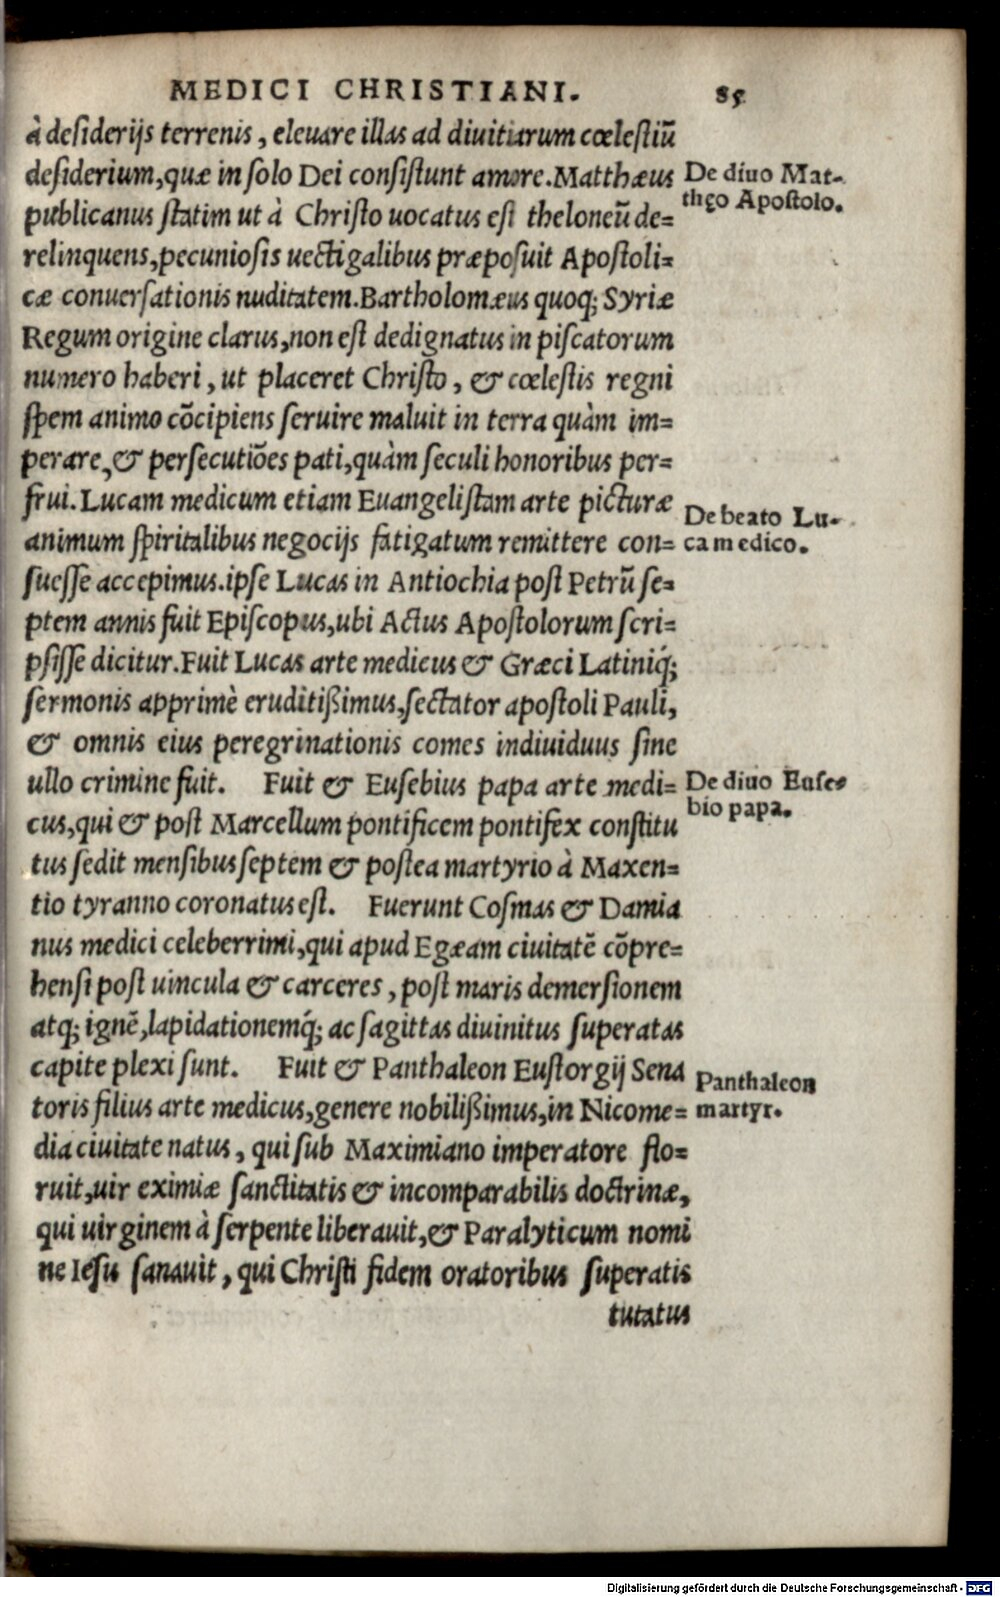 MEDICI CHRISTIANI. 85
à desiderijs terrenis, eleuare illas ad diuitiarum cœlestiũ
desiderium, quæ in solo Dei consistunt amore. Matthæus
De diuo Mat-
thęo Apostolo.
publicanus statim ut à Christo uocatus est theloneũ de=
relinquens, pecuniosis uectigalibus præposuit Apostoli=
cæ conuersationis nuditatem. Bartholomæus quoq; Syriæ
Regum origine clarus, non est dedignatus in piscatorum
numero haberi, ut placeret Christo, & cœlestis regni
spem animo cõcipiens seruire maluit in terra quàm im=
perare, & persecutiões pati, quàm seculi honoribus per=
frui. Lucam medicum etiam Euangelistam arte picturæ
De beato Lu-
ca medico.
animum spiritalibus negocijs fatigatum remittere con=
suesse accepimus. ipse Lucas in Antiochia post Petrũ se=
ptem annis fuit Episcopus, ubi Actus Apostolorum scri=
psisse dicitur. Fuit Lucas arte medicus & Græci Latiniq́;
sermonis apprimè eruditißimus, sectator apostoli Pauli,
& omnis eius peregrinationis comes indiuiduus sine
ullo crimine fuit. Fuit & Eusebius papa arte medi=
De diuo Euse-
bio papa.
cus, qui & post Marcellum pontificem pontifex constitu
tus sedit mensibus septem & postea martyrio à Maxen=
tio tyranno coronatus est. Fuerunt Cosmas & Damia
nus medici celeberrimi, qui apud Egæam ciuitatẽ cõpre=
hensi post uincula & carceres, post maris demersionem
atq; ignẽ, lapidationemq́; ac sagittas diuinitus superatas
capite plexi sunt. Fuit & Panthaleon Eustorgij Sena
Panthaleon
martyr.
toris filius arte medicus, genere nobilißimus, in Nicome=
dia ciuitate natus, qui sub Maximiano imperatore flo=
ruit, uir eximiæ sanctitatis & incomparabilis doctrinæ,
qui uirginem à serpente liberauit, & Paralyticum nomi
ne Iesu sanauit, qui Christi fidem oratoribus superatis
tutatus
Digitalisierung gefördert durch die Deutsche Forschungsgemeinschaft - DFG